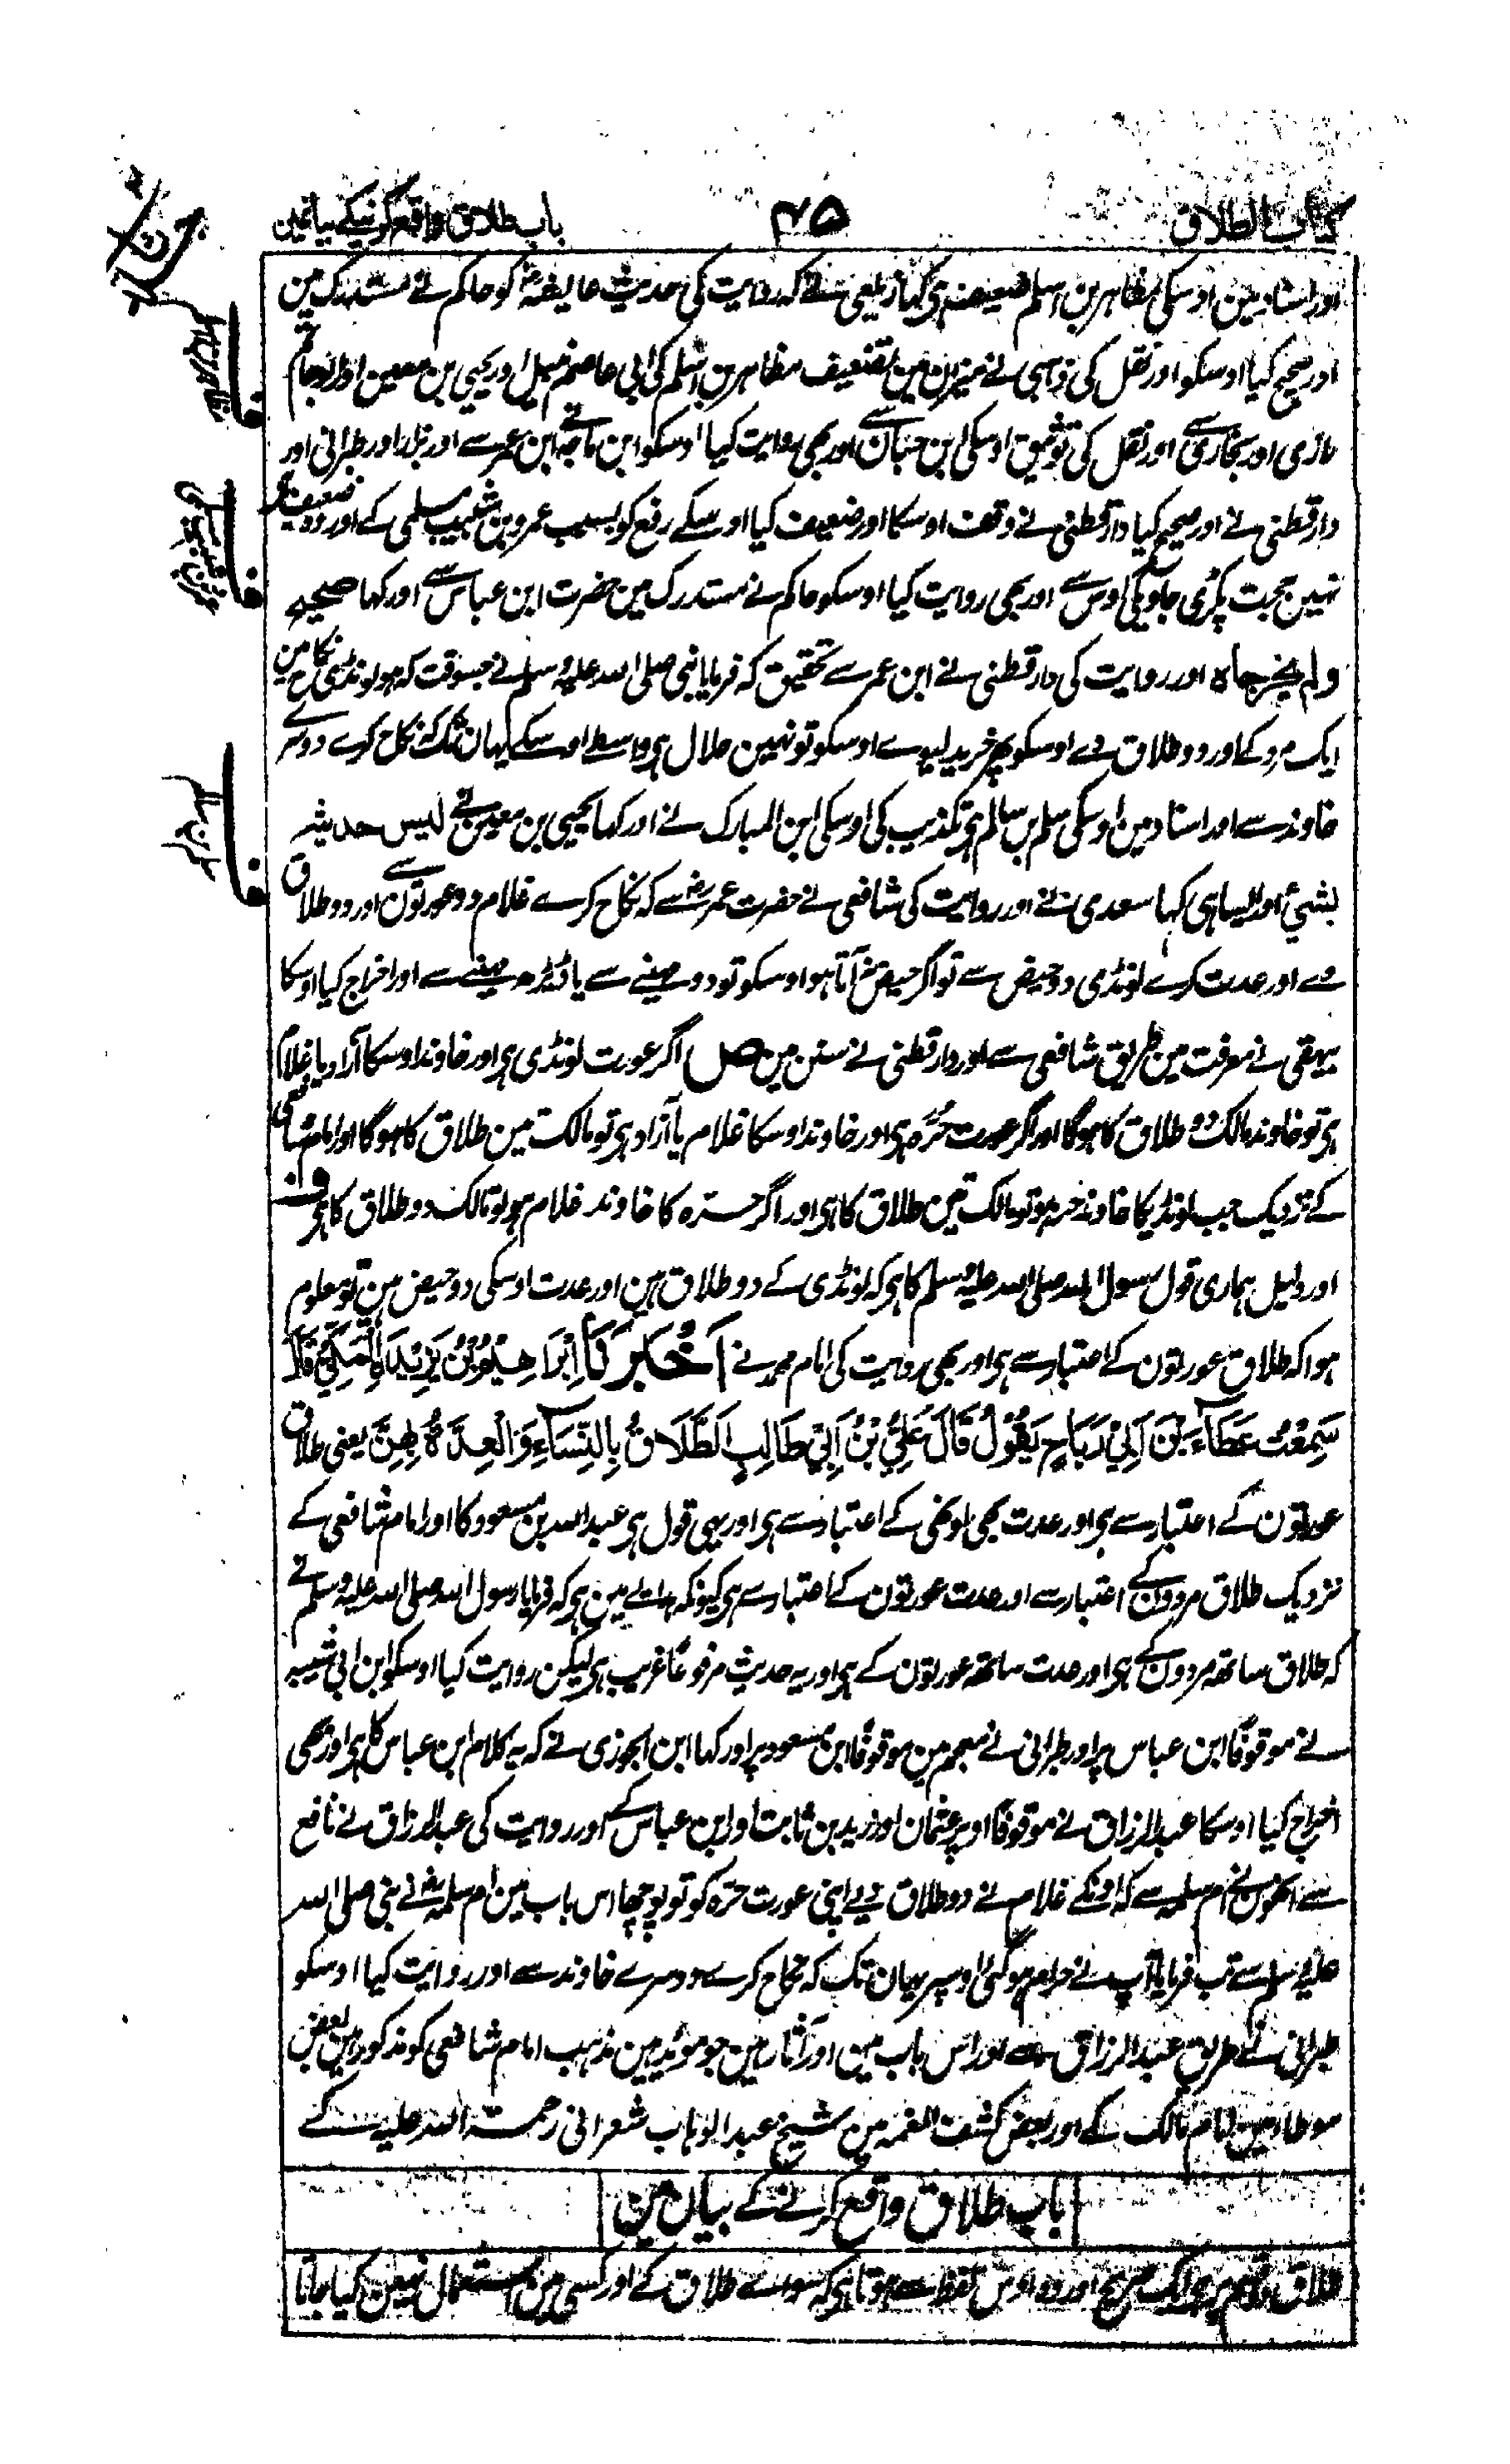 کتاب الطلاق
۴۵
باب طلاق واقع کرنیکے بیانمین
اور اسناد مین اوسکی مظاہر بن اسلم ضعیف ہی کہا زیلعی نے کہ روایت کی حدیث عایشہ کو حاکم نے مستدرک مین
اور صحیح کیا اوسکو اور نقل کی ذہبی نے میزان مین تضعیف مظاہر بن اسلم کی ابی عاصم نبیل اور یحیی بن معین اور ابو حاتم
رازی اور بخاری سے اور نقل کی توثیق اوسکی ابن حبان سے اور بھی روایت کیا اوسکو ابن ماجہ نے ابن عمر سے اور بزار اور طبرانی اور
دارقطنی نے اور صحیح کیا دارقطنی نے وقف اوسکا اور ضعیف کیا اوسکے رفع کو بسبب عمرو بن شبیب مسلی کے اور وہ ضعیف ہی
نہین حجت پکڑی جاویگی اوس سے اور بھی روایت کیا اوسکو حاکم نے مستدرک مین حضرت ابن عباس سے اور کہا صحیح
ولم یخرجاہ اور روایت کی دارقطنی نے ابن عمر سے تحقیق کہ فرمایا نبی صلی اللہ علیہ وسلم نے جسوقت کہ ہو لونڈی نکاح مین
ایک مرد کے اور دو طلاق دے اوسکو پھر خرید لیوے اوسکو تو نہین حلال ہی واسطے اوسکے یہان تک کہ نکاح کرے دوسرے
خاوند سے اور اسناد مین اوسکی سلم بن سالم ہی تکذیب کی اوسکی ابن المبارک نے اور کہا یحیی بن معین نے لیس حدیثہ
بشیٔ اور ایسا ہی کہا سعدی نے اور روایت کی شافعی نے حضرت عمر رضہ سے کہ نکاح کرے غلام دو عورتون سے اور دو طلاق
دے اور عدت کرے لونڈی دو حیض سے تو اگر حیض نہ آتا ہو اوسکو تو دو مہینے سے یا ڈیڑھ مہینے سے اور اخراج کیا اوسکا
بیہقی نے معرفت مین طریق شافعی سے اور دارقطنی نے سنن مین ص اگر عورت لونڈی ہی اور خاوند اوسکا آزاد یا غلام
ہی تو خاوند مالک دو طلاق کا ہوگا اور اگر عورت حُرَّہ ہی اور خاوند اوسکا غلام یا آزاد ہی تو مالک تین طلاق کا ہوگا اور امام شافعی
کے نزدیک جب لونڈیکا خاوند حر ہو تو مالک تین طلاق کا ہی اور اگر حرّہ کا خاوند غلام ہو تو مالک دو طلاق کا ہی ف
اور دلیل ہماری قول رسول اللہ صلی اللہ علیہ وسلم کا ہی کہ لونڈی کے دو طلاق ہین اور عدت اوسکی دو حیض ہین تو معلوم
ہوا کہ طلاق عورتون کے اعتبار سے ہی اور بھی روایت کی امام محمد نے اَخْبَرَنَا اِبْرَاهِیْمُ بْنُ یَزِیْدَ الْمَکِّیُّ قَالَ
سَمِعْتُ عَطَاءَ بْنَ اَبِیْ رَبَاحٍ یَقُوْلُ قَالَ عَلِیُّ بْنُ اَبِیْ طَالِبٍ اَلطَّلَاقُ بِالنِّسَاءِ وَالْعِدَّةُ بِهِنَّ یعنی طلاق
عورتون کے اعتبار سے ہی اور عدت بھی اونھی کے اعتبار سے ہی اور یہی قول ہی عبداللہ بن مسعود کا اور امام شافعی کے
نزدیک طلاق مردون کے اعتبار سے اور عدت عورتون کے اعتبار سے ہی کیونکہ ہدایے مین ہی کہ فرمایا رسول اللہ صلی اللہ علیہ وسلم نے
کہ طلاق ساتھ مردون کے ہی اور عدت ساتھ عورتون کے ہی اور یہ حدیث مرفوعًا غریب ہی لیکن روایت کیا اوسکو ابن ابی شیبہ
نے موقوفًا ابن عباس پر اور طبرانی نے معجم مین موقوفًا ابن مسعود پر اور کہا ابن الجوزی نے کہ یہ کلام ابن عباس کا ہی اور بھی
اخراج کیا اوسکا عبدالرزاق نے موقوفًا اوپر عثمان اور زید بن ثابت اور ابن عباس کے اور روایت کی عبدالرزاق نے نافع
سے انھون نے ام سلمہ سے کہ اونکے غلام نے دو طلاق دیے اپنی عورت حرّہ کو تو پوچھا اس باب مین ام سلمہ نے نبی صلی اللہ
علیہ وسلم سے تب فرمایا آپ نے حرام ہوگئی اوسپر یہان تک کہ نکاح کرے دوسرے خاوند سے اور روایت کیا اوسکو
طبرانی نے طریق عبدالرزاق سے اور اس باب مین اور آثار ہین جو موئد ہین مذہب امام شافعی کو مذکور ہین بعض
موطا مین امام مالک کے اور بعض کشف الغمہ مین شیخ عبدالوہاب شعرانی رحمتہ اللہ علیہ کے
باب طلاق واقع کرنے کے بیان مین
طلاق دو قسم پر ہی ایک صریح اور وہ اوس لفظ سے ہوتا ہی کہ سواے طلاق کے اور کسی مین استعمال نہین کیا جاتا